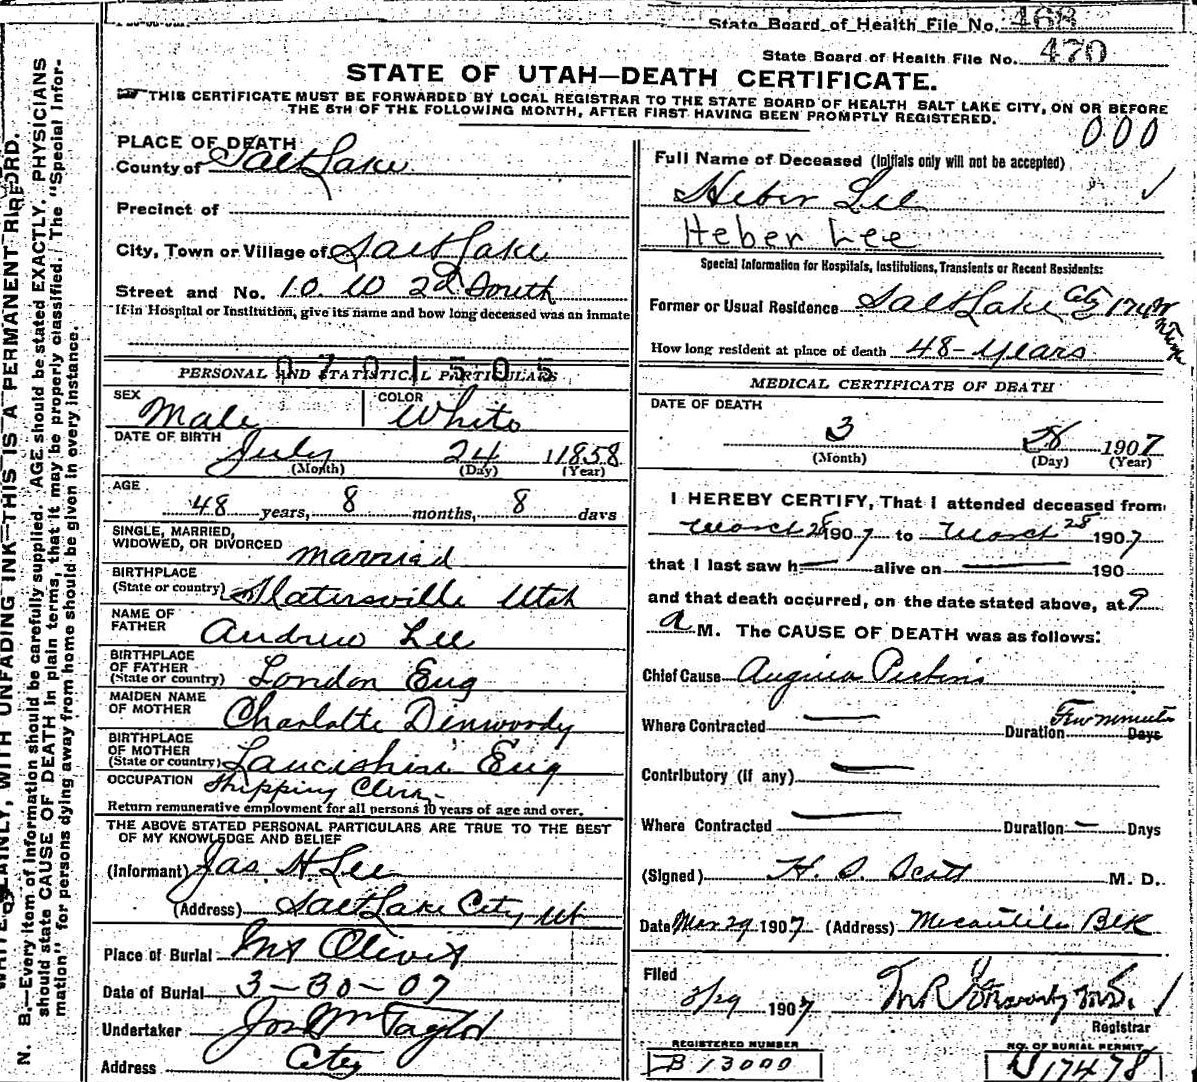 State Board of Health File No. 468
State Board of Health File No. 470
STATE OF UTAH—DEATH CERTIFICATE.
THIS CERTIFICATE MUST BE FORWARDED BY LOCAL REGISTRAR TO THE STATE BOARD OF HEALTH SALT LAKE CITY, ON OR BEFORE
THE 5TH OF THE FOLLOWING MONTH, AFTER FIRST HAVING BEEN PROMPTLY REGISTERED.
000
PLACE OF DEATH
County of Salt Lake
Precinct of
City, Town or Village of Salt Lake
Street and No. 10 W 2d South
If in Hospital or Institution, give its name and how long deceased was an inmate
0701505
PERSONAL AND STATISTICAL PARTICULARS
SEX Male COLOR White
DATE OF BIRTH July 24 1858
(Month) (Day) (Year)
AGE 48 years, 8 months, 8 days
SINGLE, MARRIED,
WIDOWED, OR DIVORCED married
BIRTHPLACE
(State or country) Slatersville Utah
NAME OF
FATHER Andrew Lee
BIRTHPLACE
OF FATHER
(State or country) London Eng
MAIDEN NAME
OF MOTHER Charlotte Dinwoody
BIRTHPLACE
OF MOTHER
(State or country) Lancishire Eng
OCCUPATION Shipping Clerk
Return remunerative employment for all persons 10 years of age and over.
THE ABOVE STATED PERSONAL PARTICULARS ARE TRUE TO THE BEST
OF MY KNOWLEDGE AND BELIEF
(Informant) Jas. H Lee
(Address) Salt Lake City, Ut
Place of Burial Mt Olivet
Date of Burial 3-30-07
Undertaker Jos Wm Taylor
Address City
Full Name of Deceased (Initials only will not be accepted)
Heber Lee
Heber Lee
Special Information for Hospitals, Institutions, Transients or Recent Residents:
Former or Usual Residence Salt Lake City 174 W
How long resident at place of death 48-years
MEDICAL CERTIFICATE OF DEATH
DATE OF DEATH
3 28 1907
(Month) (Day) (Year)
I HEREBY CERTIFY, That I attended deceased from
March 28 1907 to March 28 1907
that I last saw h— alive on — 190
and that death occurred, on the date stated above, at 9
a M. The CAUSE OF DEATH was as follows:
Chief Cause Angina Pectoris
Where Contracted — Duration Few minutes Days
Contributory (if any) —
Where Contracted — Duration — Days
(Signed) H. S. Scott M. D.
Date Mar 29 1907 (Address) Mercantile Blk
Filed 3/29 1907
Registrar
REGISTERED NUMBER
B 13000
NO. OF BURIAL PERMIT
17478
WRITE PLAINLY, WITH UNFADING INK—THIS IS A PERMANENT RECORD.
N. B.—Every item of Information should be carefully supplied. AGE should be stated EXACTLY. PHYSICIANS
should state CAUSE OF DEATH in plain terms, that it may be properly classified. The "Special Infor-
mation" for persons dying away from home should be given in every instance.